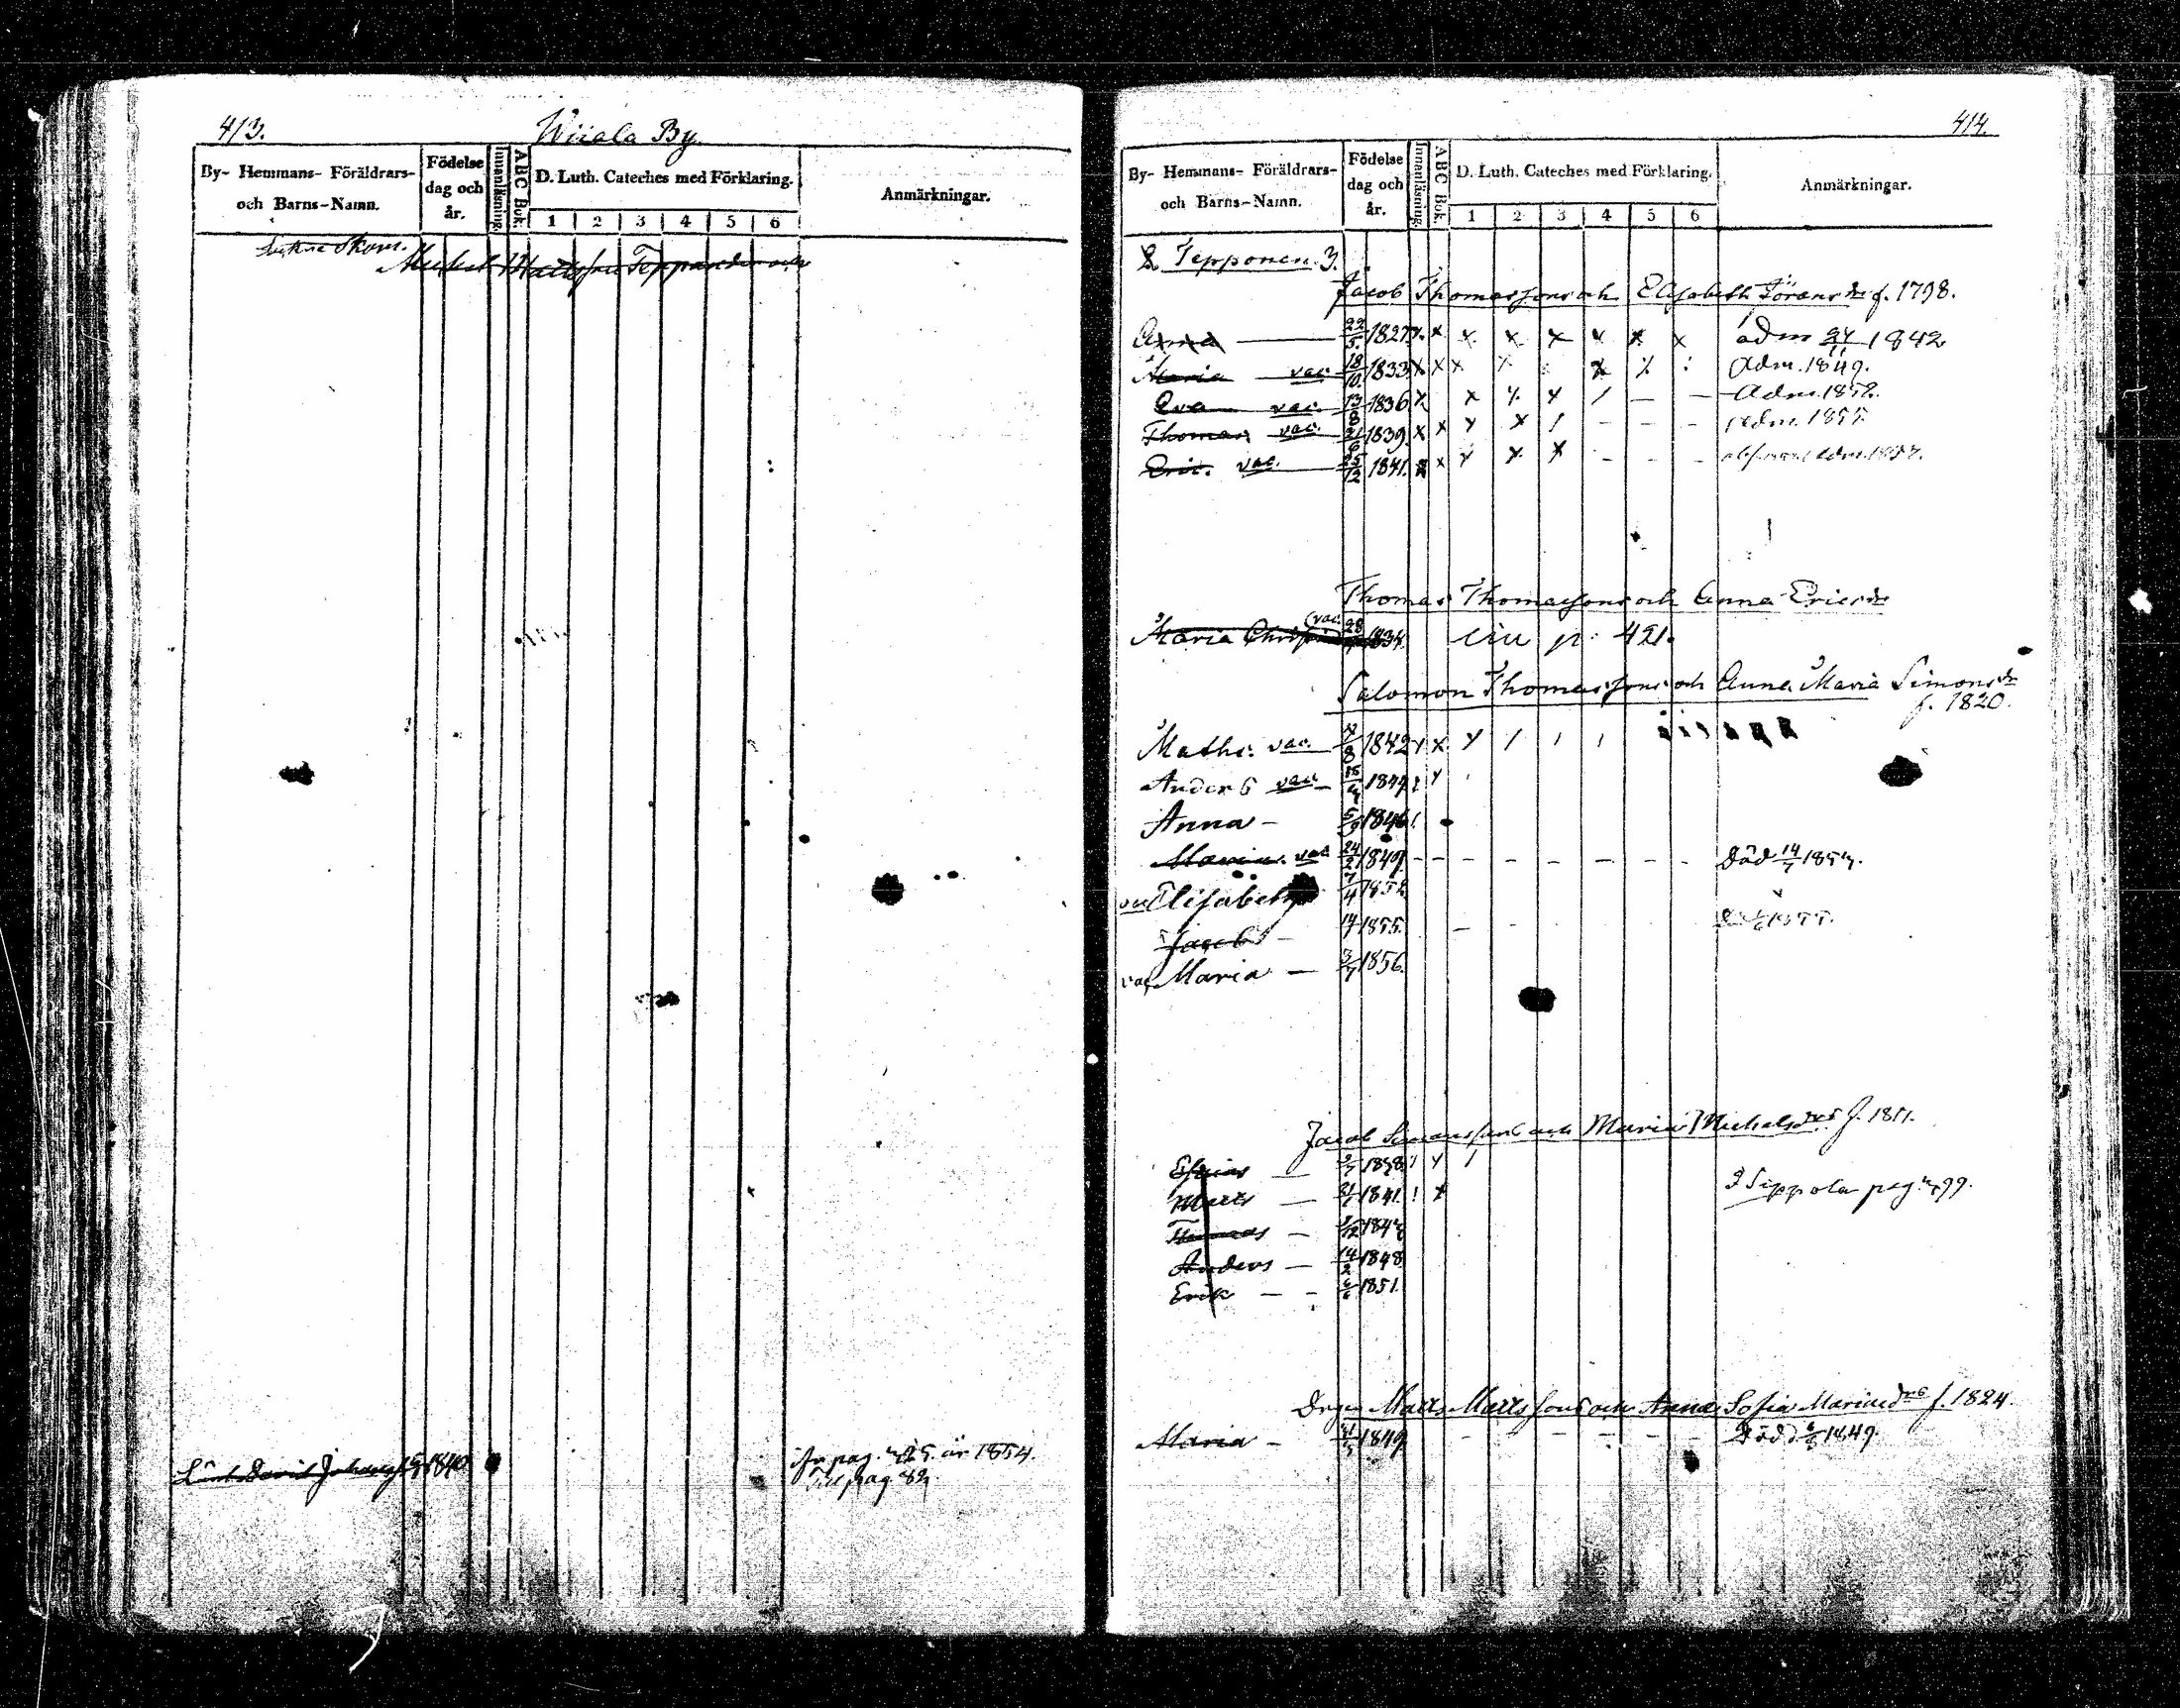 413.
Wiiala By
By- Hemmans- Föräldrars- och Barns-Namn.
Födelse dag och år.
Innanläsning.
ABC Bok.
D. Luth. Cateches med Förklaring.
1 2 3 4 5 6
Anmärkningar.
Michel Mattsson Teppander och
David Johans 1840
pag. 425 år 1854.
Till pag. 82
414.
By- Hemmans- Föräldrars- och Barns-Namn.
Födelse dag och år.
Innanläsning.
ABC Bok.
D. Luth. Cateches med Förklaring.
1 2 3 4 5 6
Anmärkningar.
Tepponen. 3.
Jacob Thomassons och Elisabeth Jöransdr f. 1798.
Anna — 22/5. 1827 x x x x x x x x adm 24/11 1842
Maria vac. 18/10. 1833 x x x x Adm. 1849.
Eva vac. 13/8 1836 x x x x / — — Adm. 1852.
Thomas vac. 21/6 1839 x x x x / - - - adm. 1855
Eric. vac. 25/12 1841. x x x x x - - - adm. 1857.
Thomas Thomassons och Anna Ericsdr
Maria vac. 28 1834. p. 421.
Salomon Thomassons och Anna Maria Simonsdr
f. 1820.
Maths. vac. 8 1842 x x / / /
Anders vac. 15/4 1844
Anna — 5/9 1846
Maria. vac 24/2 1849 - - - - - - - Död 14/7 1854.
vac Elisabeth 7/4 1852
Jacob — 14/4 1855. - - - -
vac Maria — 3/7 1856.
Jacob Simonssons och Maria Michelsdrs f. 1811.
Esaias — 1838
Matts — 1841. ! x Sippola pag. 499.
Thomas — /12 184
Anders — 14/2 1848
Erik — - 6 1851.
Matts Mattssons och Anna Sofia f. 1824.
Maria — 1849 - - - - - - Död 1849.